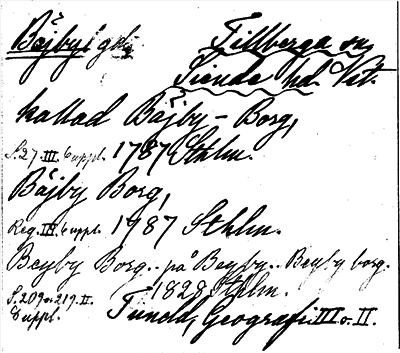 Båjby gd, Tillberga sn,
Siende hd. Vst.
kallad Båjby-Borg,
S. 27. III. 6 uppl. 1787 Sthlm.
Båjby Borg,
Reg. III. 6 uppl. 1787 Sthlm.
Beyby Borg.. på Beyby.. Beyby borg.
S. 209 o. 219. II. 1828 Sthlm.
8 uppl. Tuneld, Geografi III o. II.